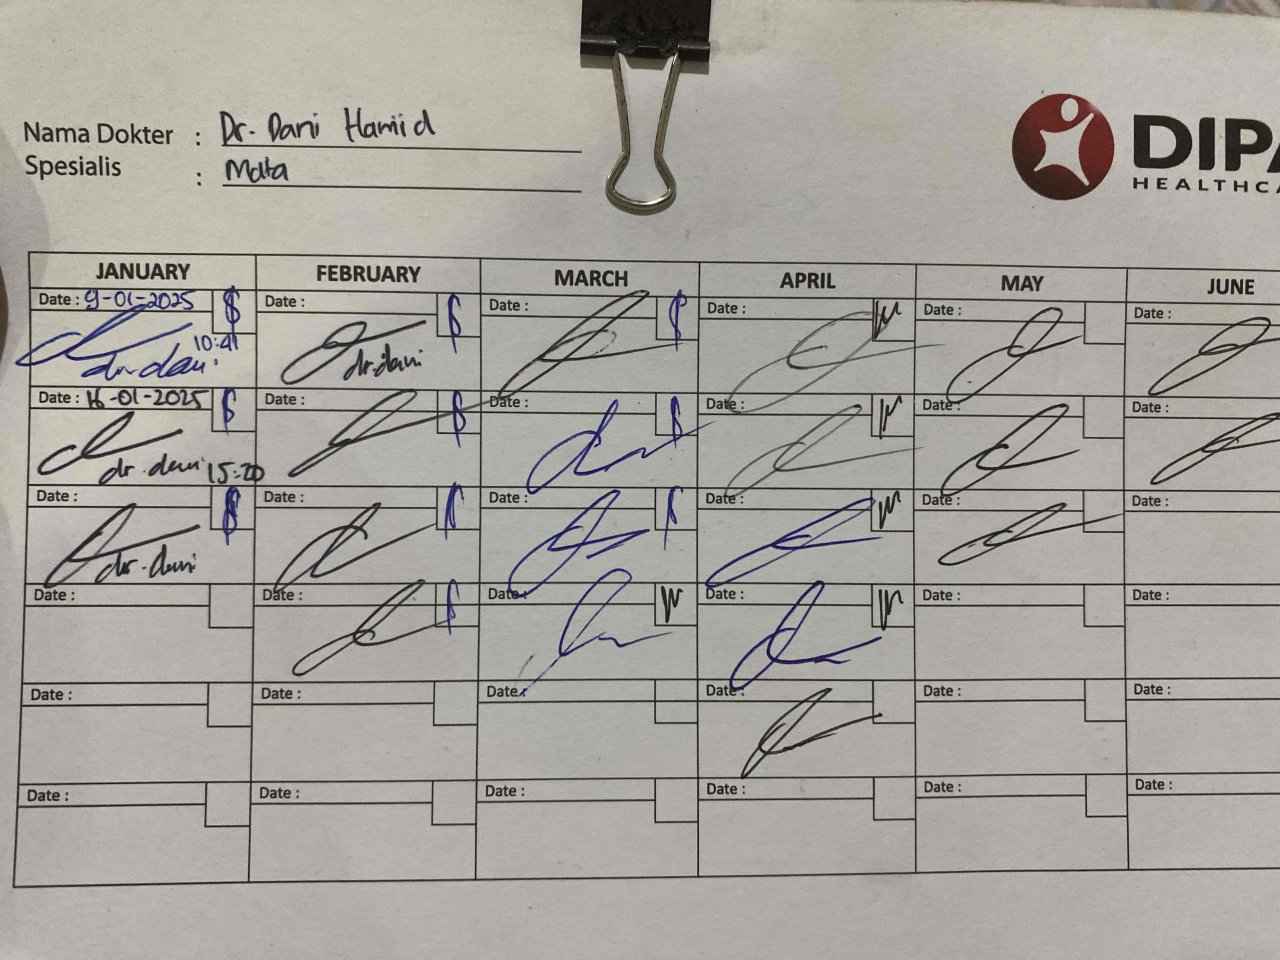 Nama Dokter : Dr. Dani Hamid
Spesialis : Mata
DIPA
HEALTHCA
JANUARY FEBRUARY MARCH APRIL MAY JUNE
Date : 9-01-2025 Date : Date : Date : Date : Date :
10:41
dr. dani dr. dani
Date : 16-01-2025 Date : Date : Date : Date : Date :
dr. dani 15:20
Date : Date : Date : Date : Date : Date :
dr. dani
Date : Date : Date : Date : Date : Date :
Date : Date : Date : Date : Date : Date :
Date : Date : Date : Date : Date : Date :